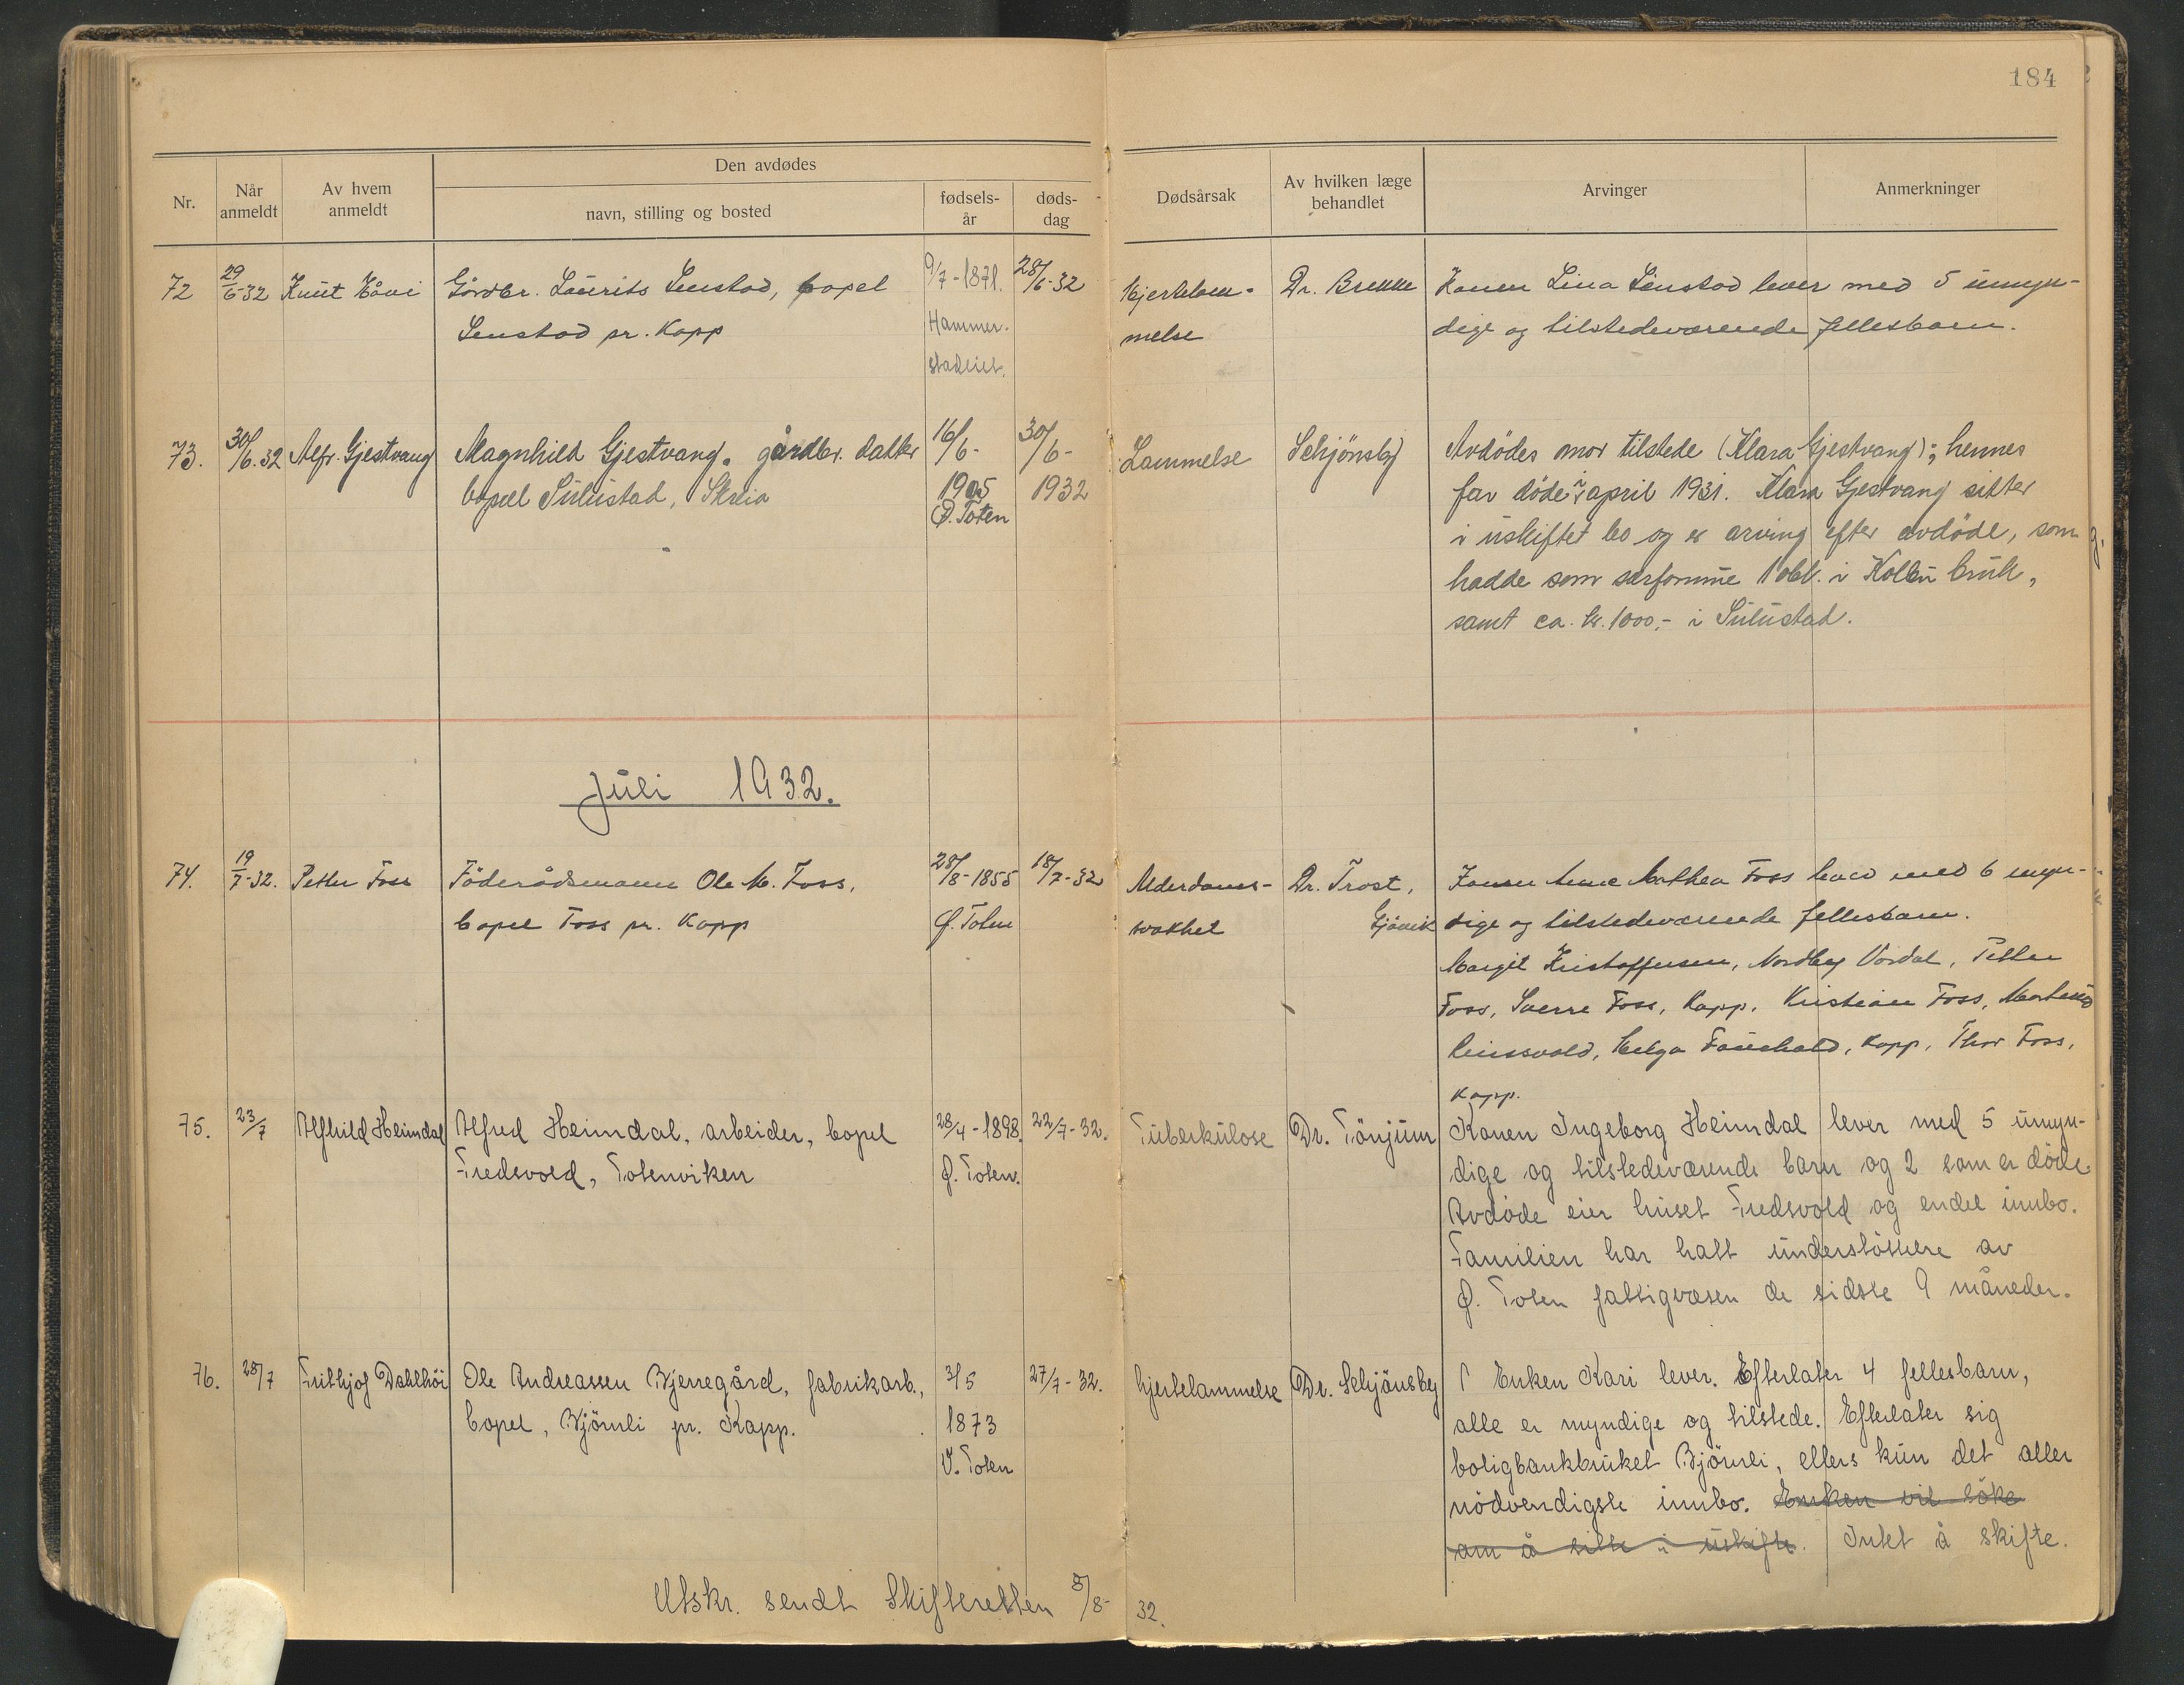 184
Den avdødes
Nr.
Når anmeldt
Av hvem anmeldt
navn, stilling og bosted
fødsels-år
døds-dag
Dødsårsak
Av hvilken læge behandlet
Arvinger
Anmerkninger
72 29/6-32 Knut Håvi Gårdbr. Laurits Senstad, bopel 9/7-1871. 28/6-32 Hjertelam- Dr. Brekke Konen Lina Senstad lever med 5 umyn-
Senstad pr. Kapp Hammer- melse dige og tilstedeværende fellesbarn.
stadeiet.
73. 30/6.32 Alfr. Gjestvang Magnhild Gjestvang. gårdbr. datter 16/6- 30/6- Lammelse Schjönsby Avdödes mor tilstede (Klara Gjestvang); hennes
bopæl Sulustad, Skreia 1905 1932 far döde i april 1931. Klara Gjestvang sitter
Ø. Toten i uskiftet bo og er arving efter avdöde, som
hadde som særformue 1 obl. i Kolbu bruk,
samt ca. kr. 1000,- i Sulustad.
Juli 1932.
74. 19/7-32. Petter Foss Föderådsmann Ole M. Foss, 28/8-1855 18/7-32 Alderdoms- Dr. Trost, Konen Anne Mathea Foss lever med 6 myn-
bopel Foss pr. Kapp Ø. Toten svakhet Gjövik dige og tilstedeværende fellesbarn.
Margit Kristoffersen, Nordby Vardal, Petter
Foss, Sverre Foss, Kapp, Kristian Foss,
Helga Fauchald, Kapp, Thor Foss,
Kapp.
75. 23/7 Alfhild Heimdal Alfred Heimdal, arbeider, bopel 28/4-1898. 22/7-32. Tuberkulose Dr. Tönjum Konen Ingeborg Heimdal lever med 5 umyn-
Fredsvold, Totenviken Ø. Toten. dige og tilstedeværende barn og 2 som er döde.
Avdöde eier huset Fredsvold og endel innbo.
Familien har hatt understöttelse av
Ø. Toten fattigvæsen de sidste 9 måneder.
76. 28/7 Frithjof Dahlhöi Ole Andreassen Bjerregård, fabrikarb., 3/5 27/7-32. hjertelammelse Dr. Schjönsby Enken Kari lever. Efterlater 4 fellesbarn,
bopel, Bjömli pr. Kapp. 1873 alle er myndige og tilstede. Efterlater sig
V. Toten boligbankbruket Bjömli, ellers kun det aller
nödvendigste innbo. Enken vil söke
om å sitte i uskifte. Intet å skifte.
Utskr. sendt Skifteretten 3/8-32.